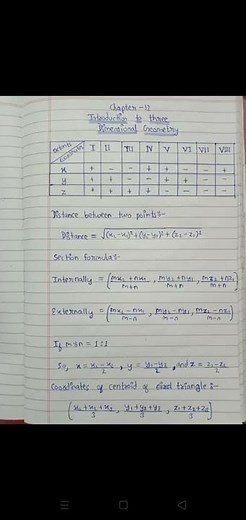 Chapter-12
Introduction to three
Dimensional Geometry
Octants I II III IV V VI VII VIII
Coordinates
x + - - + + - - +
y + + - - + + - -
z + + + + - - - -
Distance between two points:-
Distance = √(x₂-x₁)²+(y₂-y₁)²+(z₂-z₁)²
Section formula:-
Internally = (mx₂+nx₁/m+n, my₂+ny₁/m+n, mz₂+nz₁/m+n)
Externally = (mx₂-nx₁/m-n, my₂-ny₁/m-n, mz₂-nz₁/m-n)
If m:n = 1:1
So, x = x₁-x₂/2, y = y₁-y₂/2, and z = z₁-z₂/2
Coordinates of centroid of triangle:-
(x₁+x₂+x₃/3, y₁+y₂+y₃/3, z₁+z₂+z₃/3)